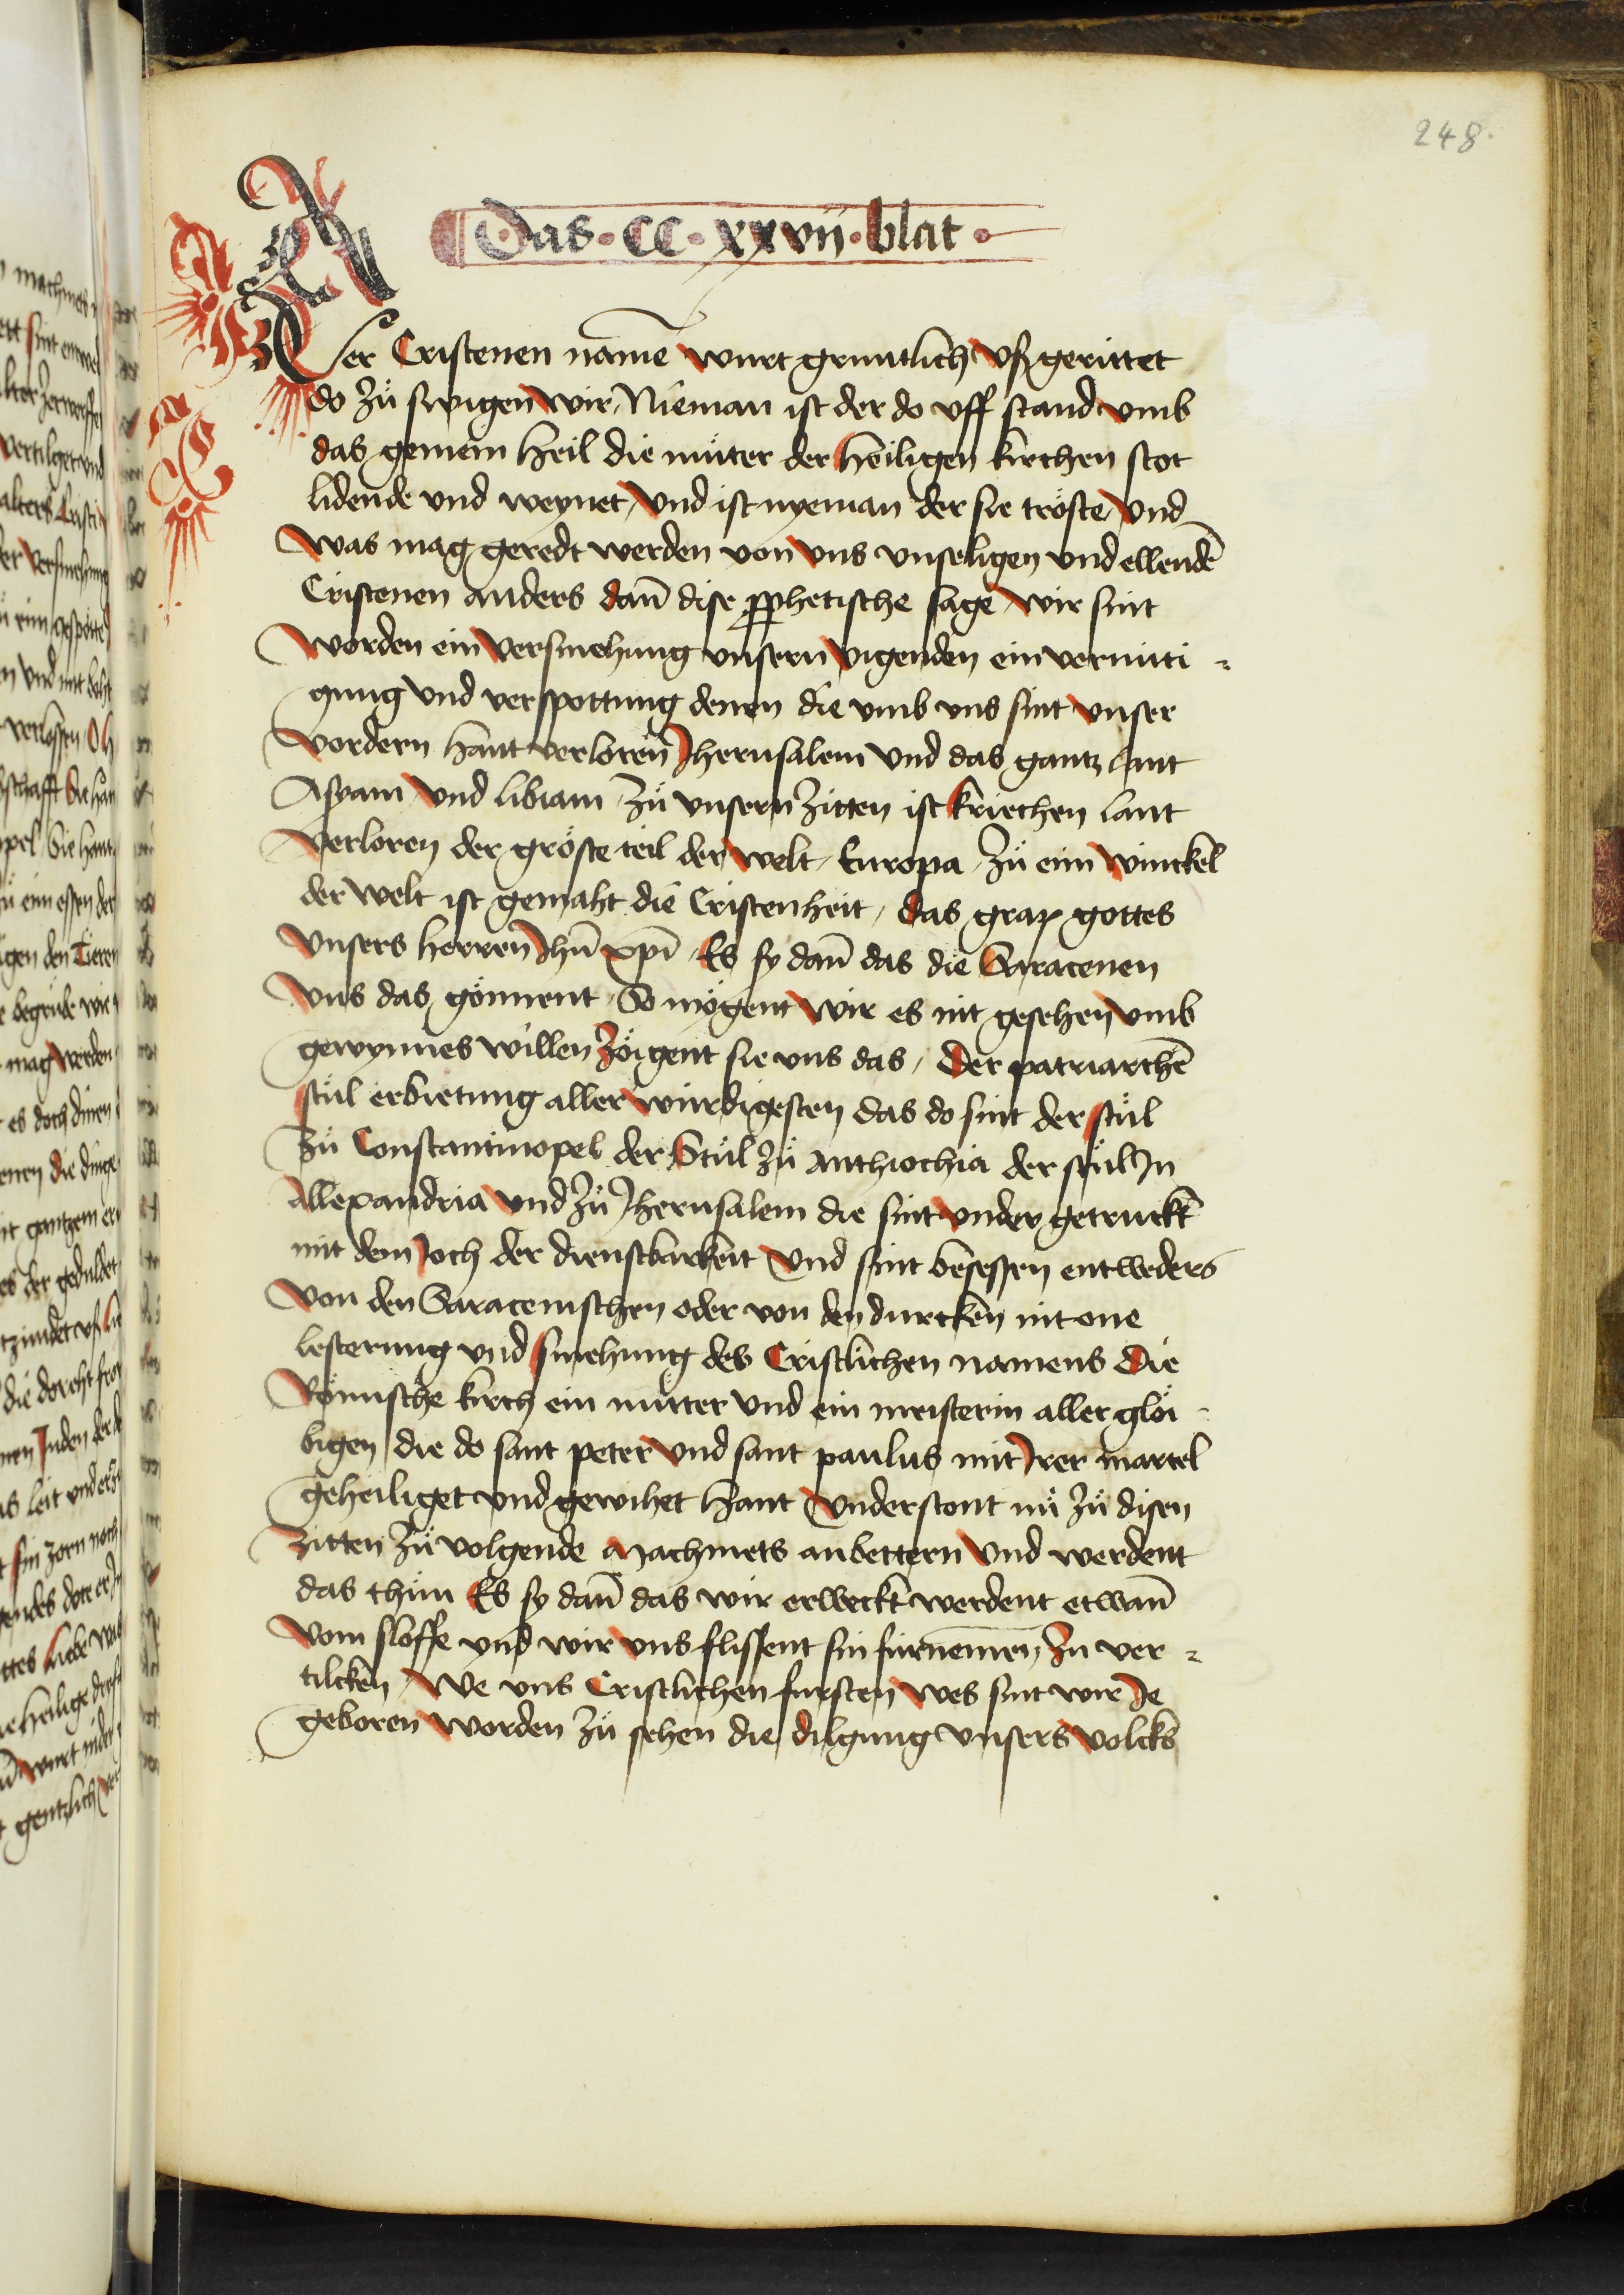 248.
Das · CC · xxvii · blat ·
Der Cristenen namē wurt gruntlich vß gerüttet
do zů swigen wir, Nieman ist der do vff stand vmb
das gemein heil die můter der heiligen kirchen stot
lidende vnd weynet, vnd ist nyeman der sie tröste, vnd
was mag geredt werden von vns vnseligen vnd ellendē
Cristenen anders dañ dise prophetische sage, wir sint
worden ein versmehung vnsern vigenden ein vernüti =
gung vnd verspottung denen die vmb vns sint vnser
vordern hant verloren Jherusalem vnd das gantz lant
Asyam vnd libiam, zů vnsern zitten ist kriechen lant
verloren der gröste teil der welt, Europa, zů eim winckel
der welt ist gemaht die Cristenheit, das grap gottes
vnsers herren Jhū xpī, Es sy dañ das die Saracenen
vns das gönnent, So mögent wir es nit gesehen vmb
gewynnes willen zöigent sie vns das, der patriarchē
stůl erbietung aller würdigesten das do sint der stůl
zů Constantinopel der Stůl zů Anthiochia der stůl In
Allexandria vnd zů Jherusalem die sint vnder getruckt
mit dem Joch der dienstbarkeit vnd sint besessen entweders
von den Saracenischen oder von den durcken nit one
lesterung vnd smehung des Cristlichen namens die
Römische kirch ein můtter vnd ein meisterin aller glöi =
bigen die do sant peter vnd sant paulus mit Irer martel
geheiliget vnd gewihet hant vnderstont nů zů disen
zitten zů volgende Machmets anbettern vnd werdent
das thůn Es sy dañ das wir erweckt werdent etwañ
vom sloffe vnd wir vns flissent sin fürnemen zu ver =
tilcken, We vns Cristlichen fursten wes sint wir Je
geboren worden zů sehen die dilgung vnsers volcks